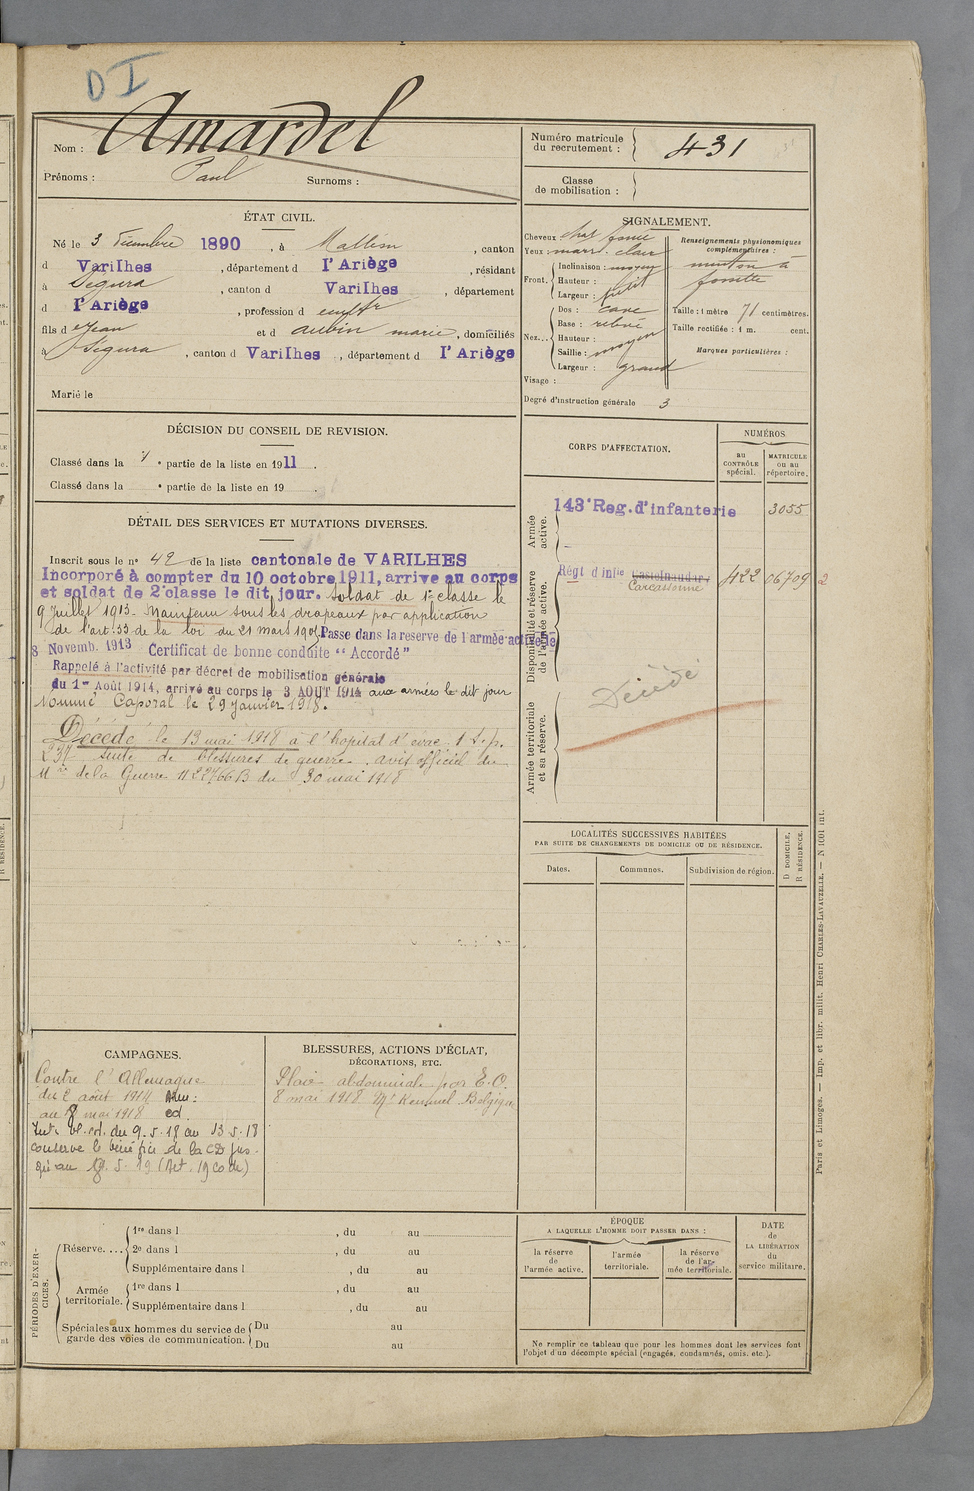 D I
Nom : Amardel
Prénoms : Paul Surnoms :
ÉTAT CIVIL.
Né le 3 Décembre 1890, à Malléon, canton
d Varilhes, département d l'Ariège, résidant
à Ségura, canton d Varilhes, département
d l'Ariège, profession d cultr
fils d e Jean et d aubin marie, domiciliés
à Ségura, canton d Varilhes, département d l'Ariège
Marié le
DÉCISION DU CONSEIL DE REVISION.
Classé dans la 1 e partie de la liste en 1911.
Classé dans la e partie de la liste en 19 .
DÉTAIL DES SERVICES ET MUTATIONS DIVERSES.
Inscrit sous le n° 42 de la liste cantonale de VARILHES
Incorporé à compter du 10 octobre 1911, arrive au corps
et soldat de 2e classe le dit jour. Soldat de 1e classe le
9 Juillet 1913. Maintenu sous les drapeaux par application
de l'art. 33 de la loi du 21 mars 1905. Passe dans la reserve de l'armée active le
8 Novemb. 1913 Certificat de bonne conduite "Accordé"
Rappelé à l'activité par décret de mobilisation générale
du 1er Août 1914, arrivé au corps le 3 AOUT 1914 aux armées le dit jour
Nommé Caporal le 29 Janvier 1918.
Décédé le 13 mai 1918 à l'hopital d'évac.
suite de blessures de guerre. avis officiel du
Mtre de la Guerre du 30 mai 1918
CAMPAGNES.
Contre l'Allemagne
du 2 août 1914
au 8 mai 1918
Int. bl. cd. du 9.5.18 au 13.5.18
conserve le bénéfice de la CD jus-
qu'au
BLESSURES, ACTIONS D'ÉCLAT,
DÉCORATIONS, ETC.
Plaie abdominale par E.O.
8 mai 1918 Mt Kemmel Belgique
PÉRIODES D'EXERCICES.
Réserve.... 1re dans l , du au
2e dans l , du au
Supplémentaire dans l , du au
Armée territoriale. 1re dans l , du au
Supplémentaire dans l , du au
Spéciales aux hommes du service de garde des voies de communication. Du au
Du au
Numéro matricule du recrutement : 431
Classe de mobilisation :
SIGNALEMENT.
Cheveux chat foncé
Yeux marr. clair
Front. Inclinaison : moyen
Hauteur :
Largeur : petit
Nez... Dos : cave
Base : relevé
Hauteur :
Saillie : moyen
Largeur : grand
Visage :
Degré d'instruction générale 3
Renseignements physionomiques complémentaires :
menton à
fossette
Taille : 1 mètre 71 centimètres.
Taille rectifiée : 1 m. cent.
Marques particulières :
CORPS D'AFFECTATION.
NUMÉROS
au CONTRÔLE spécial.
MATRICULE ou au répertoire.
Armée active.
143e Reg. d'infanterie 3055
Disponibilité et réserve de l'armée active.
Régt d'infie Castelnaudary 422 06709 2
Carcassonne
Armée territoriale et sa réserve.
Décédé
LOCALITÉS SUCCESSIVES HABITÉES
PAR SUITE DE CHANGEMENTS DE DOMICILE OU DE RÉSIDENCE.
Dates. Communes. Subdivision de région.
D DOMICILE.
R RÉSIDENCE.
ÉPOQUE
A LAQUELLE L'HOMME DOIT PASSER DANS :
la réserve de l'armée active.
l'armée territoriale.
la réserve de l'armée territoriale.
DATE de LA LIBÉRATION du service militaire.
Ne remplir ce tableau que pour les hommes dont les services font
l'objet d'un décompte spécial (engagés, condamnés, omis, etc.).
Paris et Limoges. — Imp. et libr. milit. Henri CHARLES-LAVAUZELLE. — N 1091 int.